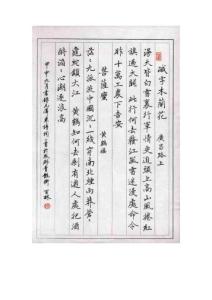 減字木蘭花
廣昌路上
漫天皆白雪裏行軍情更迫頭上高山風捲紅
旗過大關 此行何去贛江風雪迷漫處命令
昨十萬工農下吉安
菩薩蠻
黃鶴樓
茫々九派流中國沉々一線穿南北煙雨莽蒼々
龜蛇鎖大江 黃鶴知何去剩有遊人處把酒
酹滔々心潮逐浪高
甲申六月書錄毛澤東詩詞二首於